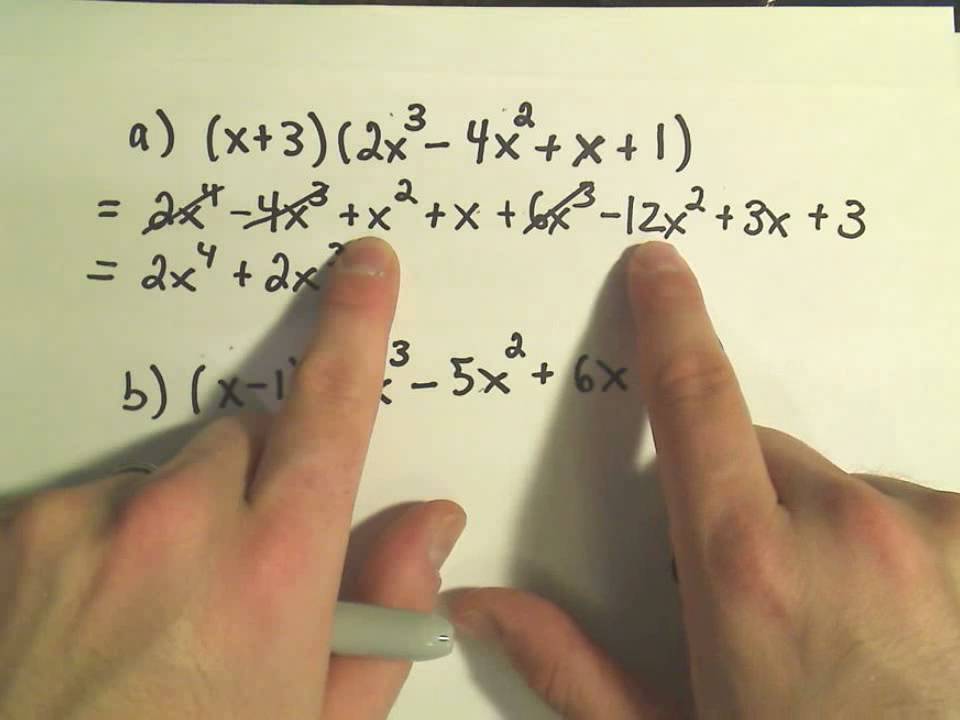 a) (x+3)(2x³ - 4x² + x + 1)
= 2x⁴ - 4x³ + x² + x + 6x³ - 12x² + 3x + 3
= 2x⁴ + 2x
b) (x-1 ³ - 5x² + 6x